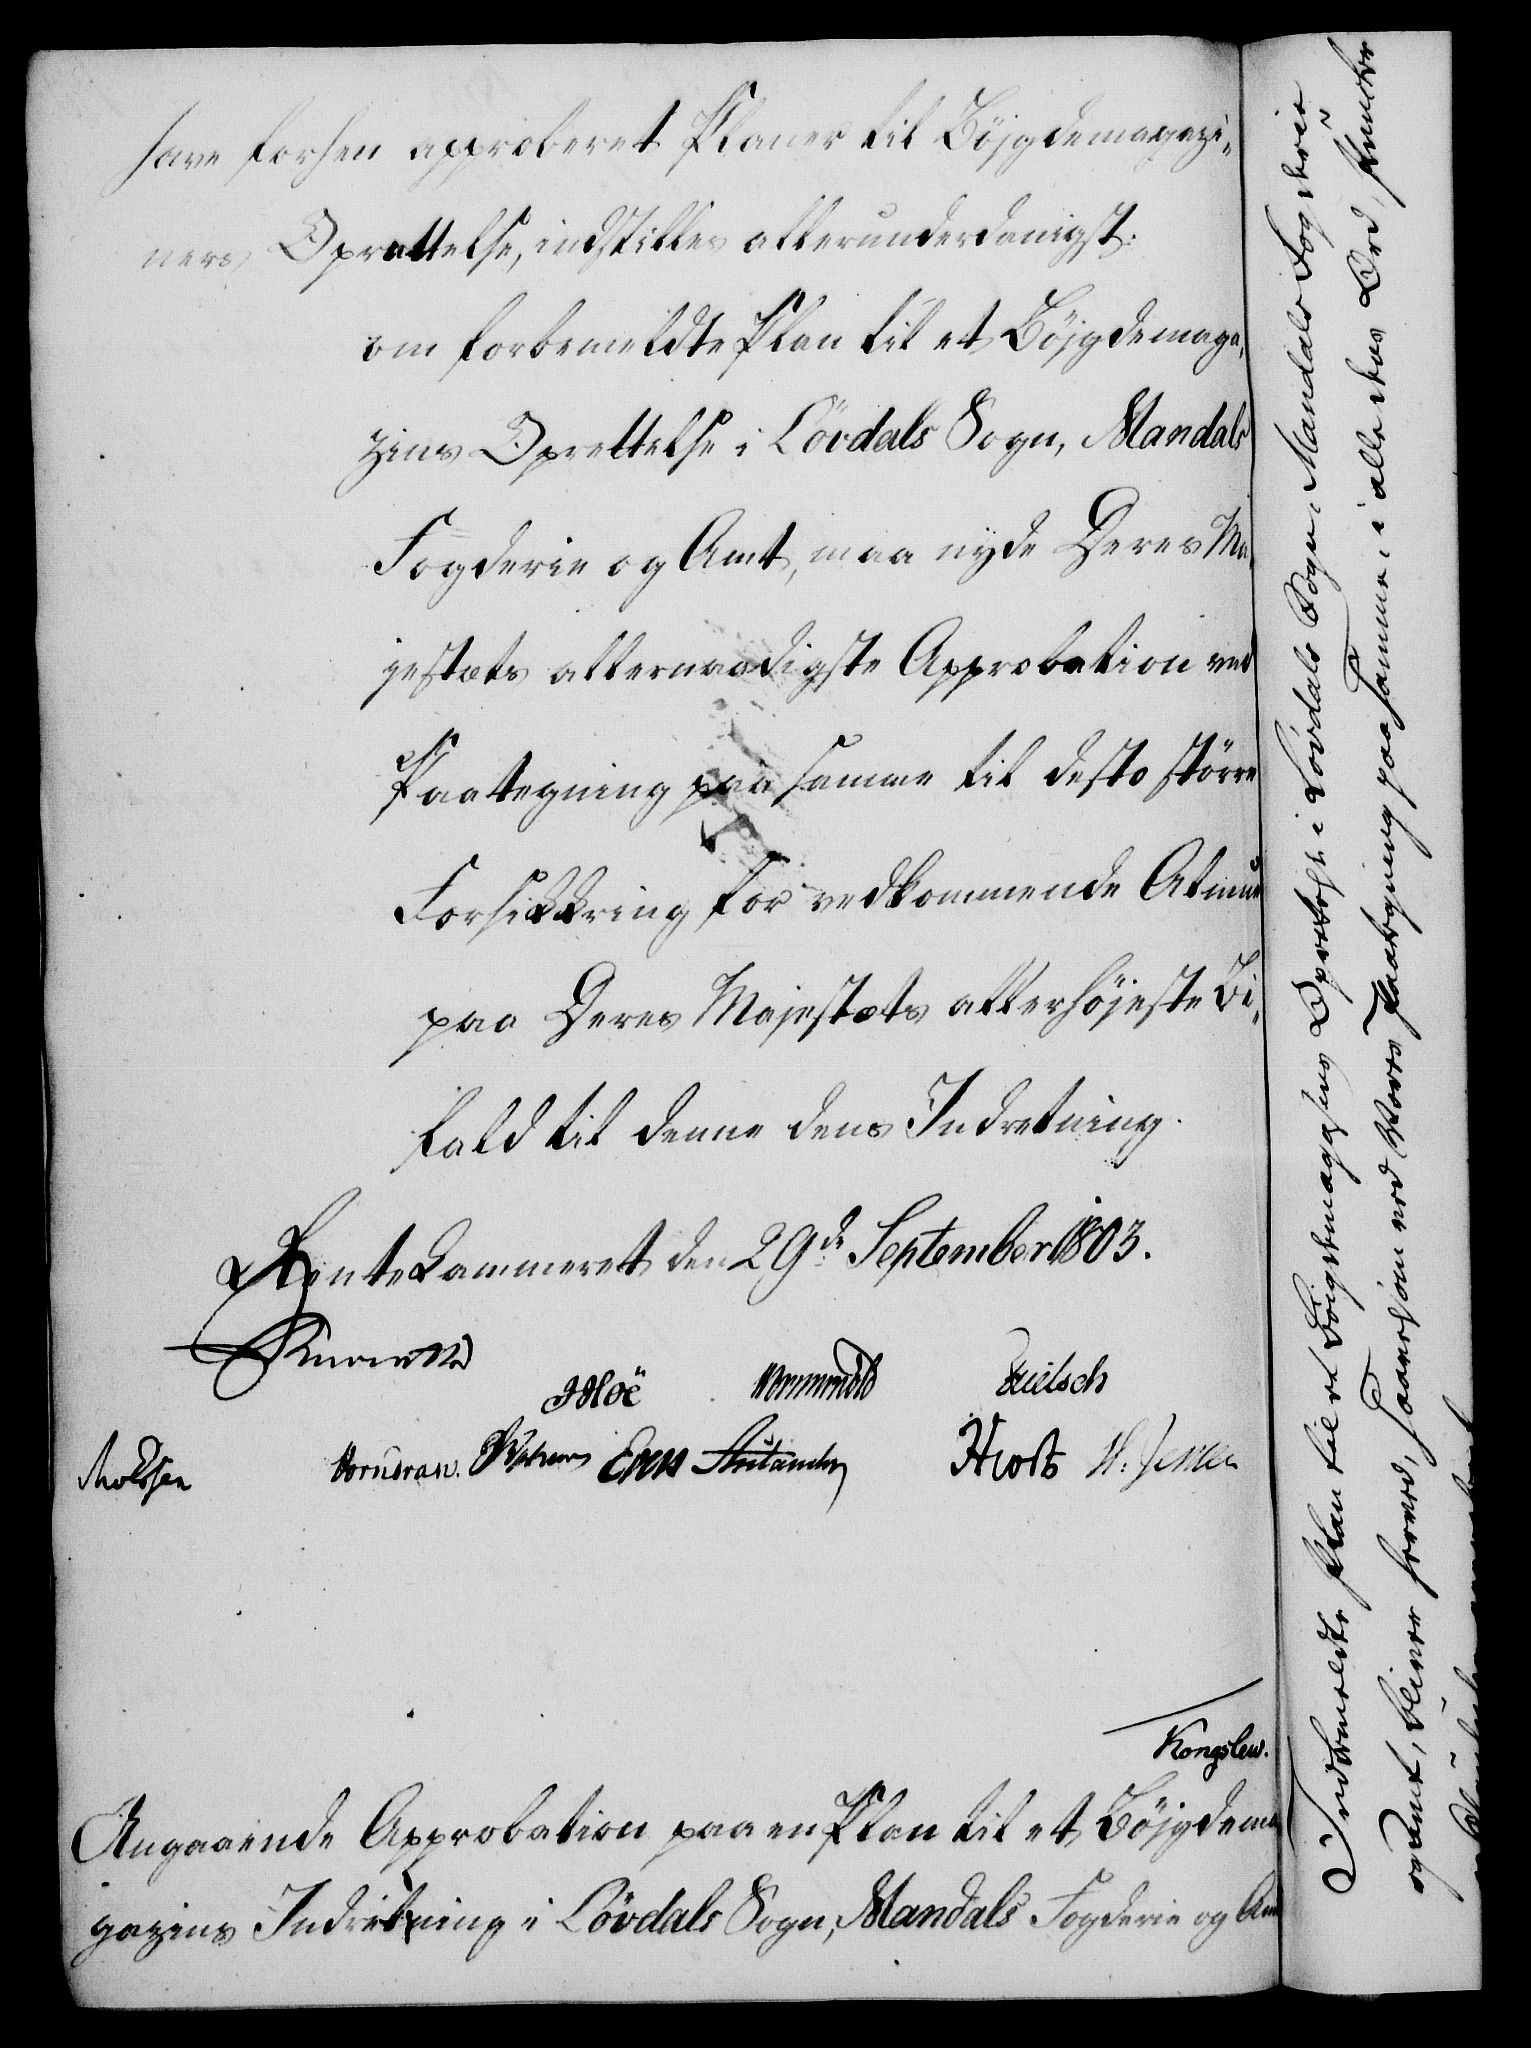 have forhen approberet Planer til Böjgdemagazi-
ners Oprættelse, indstilles allerunderdanigst:
om forbemeldte Plan til et Böjgdemaga-
zins Oprettelse i Lövdals Sogn, Mandals
Fogderie og Amt, maa nyde Deres Ma-
jestæts allernaadigste Approbation ved
Paategning paa samme til desto större
Forsikkring for vedkommende Almue
paa Deres Majestæts allerhöjeste Bi-
fald til denne dens Indretning.
Rentekammeret den 29de September 1803.
JHoë Wormskiold
Vornsrau.
Kongslew.
Angaaende Approbation paa en Plan til et Böjgdema
gazins Indretning i Lövdals Sogn, Mandals Fogderie og Am
Indbemeldte Plan til et Bøigdemagazins Oprettelse i Løvdals Sogn, Mandals Fogderie
og Amt, bliver herved, saavelsom ved Vores Paategning paa samme, i alle dets Ord, Puncter